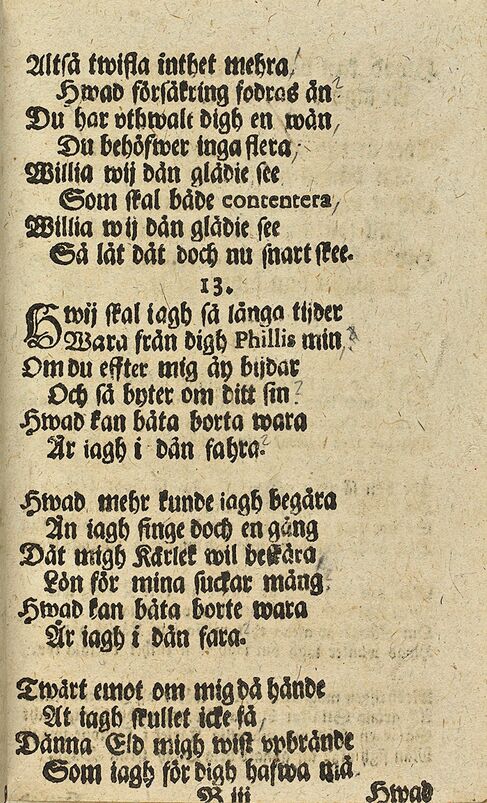 Altså twifla inthet mehra,
Hwad försäkring fodras än?
Du har vthwalt digh en wän,
Du behöfwer inga flera,
Willia wij dän glädie see
Som skal både contentera,
Willia wij dän glädie see
Så låt dät doch nu snart skee.
13.
Hwij skal iagh så långa tijder
Wara från digh Phillis min,
Om du effter mig äy bijdar
Och så byter om ditt sin?
Hwad kan båta borta wara
Är iagh i dän fahra?
Hwad mehr kunde iagh begära
Än iagh finge doch en gång
Dät migh Kärlek wil beskära
Lön för mina suckar mång
Hwad kan båta borte wara
Är iagh i dän fara.
Twärt emot om mig då hände
At iagh skullet icke få,
Dänna Eld migh wist vpbrände
Som iagh för digh hafwa må
B iii Hwad